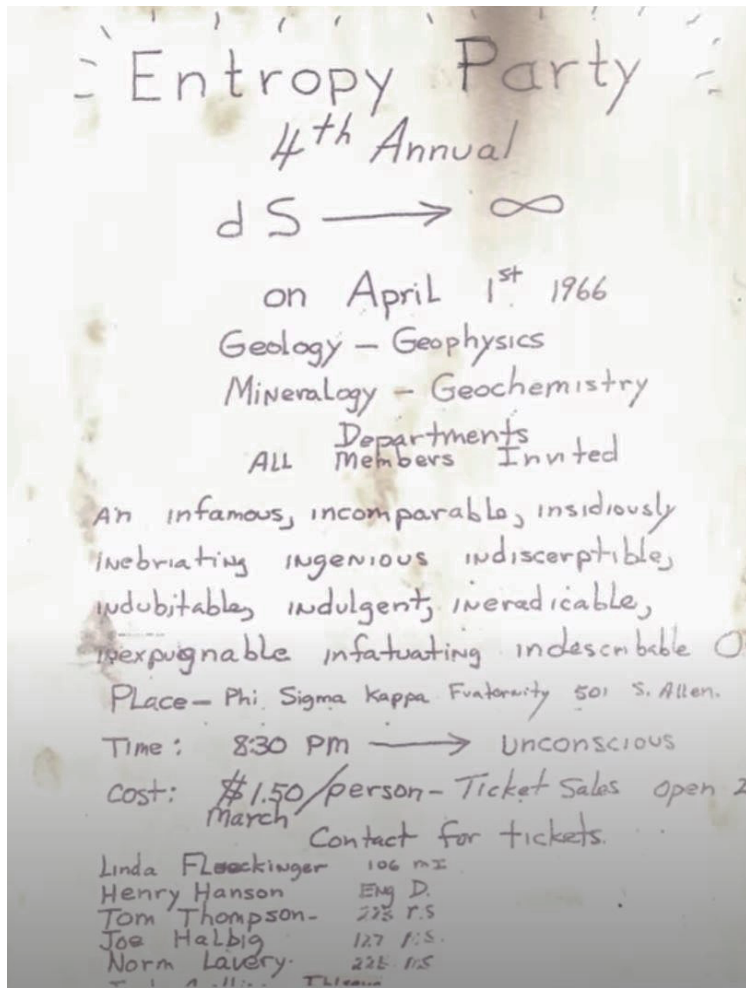 Entropy Party
4th Annual
dS → ∞
on April 1st 1966
Geology - Geophysics
Mineralogy - Geochemistry
Departments
ALL Members Invited
An infamous, incomparable, insidiously
inebriating ingenious indiscerptible,
indubitable, indulgent, ineradicable,
inexpugnable infatuating indescribable
Place - Phi Sigma Kappa Fraternity 501 S. Allen.
Time: 8:30 PM → unconscious
Cost: $1.50/person - Ticket Sales open 2
March
Contact for tickets.
Linda 106 MI
Henry Hanson Eng D.
Tom Thompson-
Joe Halbig
Norm Lavery.